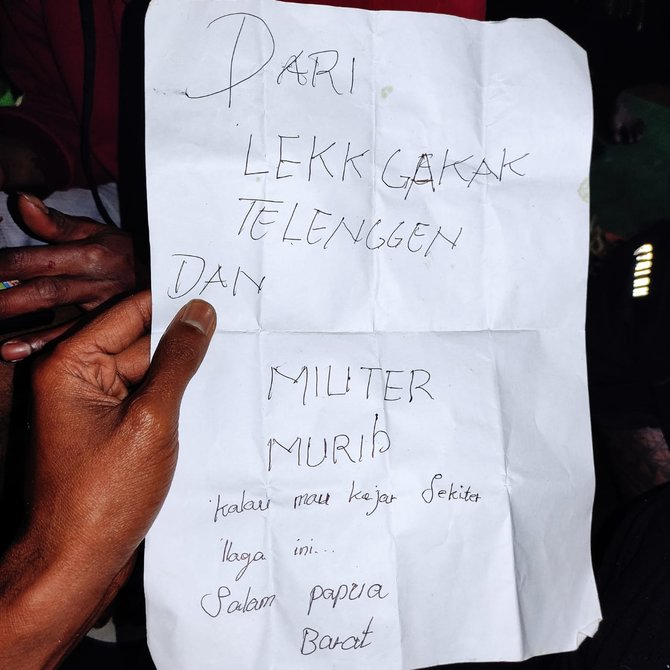 DARI
LEKK GAKAK
TELENGGEN
DAN
MILITER
MURIb
kalau mau kejar Sekiter
Ilaga ini...
Salam papua
Barat